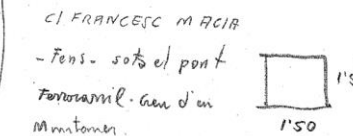 C/ FRANCESC MACIA
- Fens - sots el pont
Ferrocarril. Creu d'en
Muntaner.
1'5
1'50